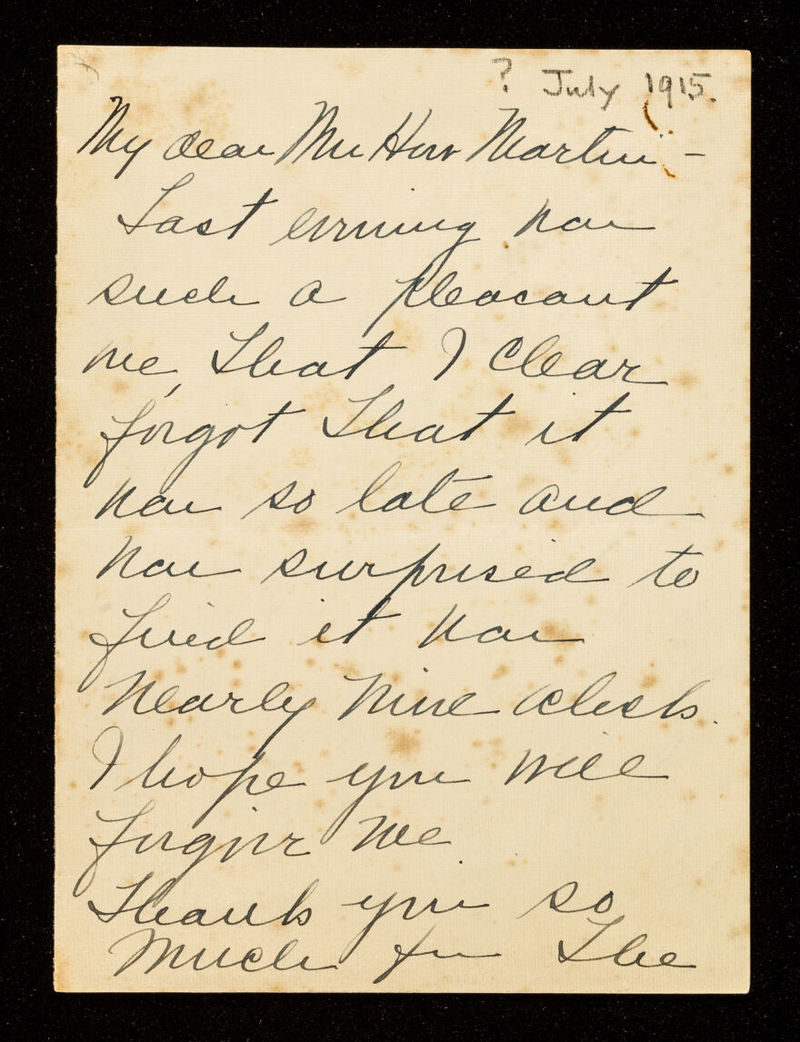 ? July 1915.
My dear Mrs How Martin -
Last evening was
such a pleasant
one, that I clear
forgot that it
was so late and
was surprised to
find it was
nearly nine oclock.
I hope you will
forgive me.
Thank you so
much for the